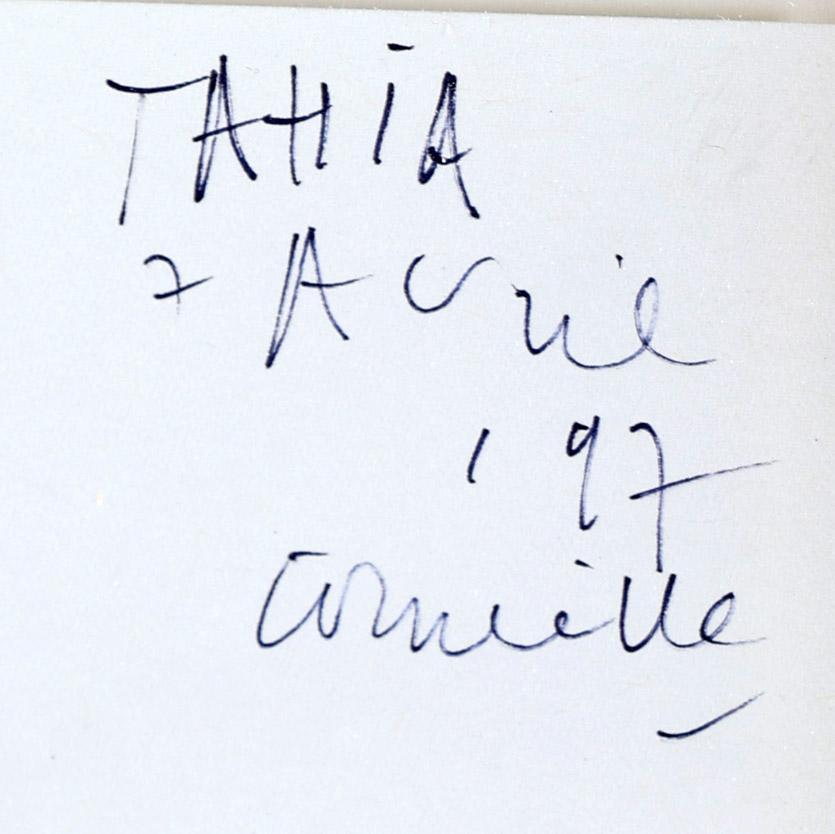 TAHIA
7 Avril
'97
Corneille